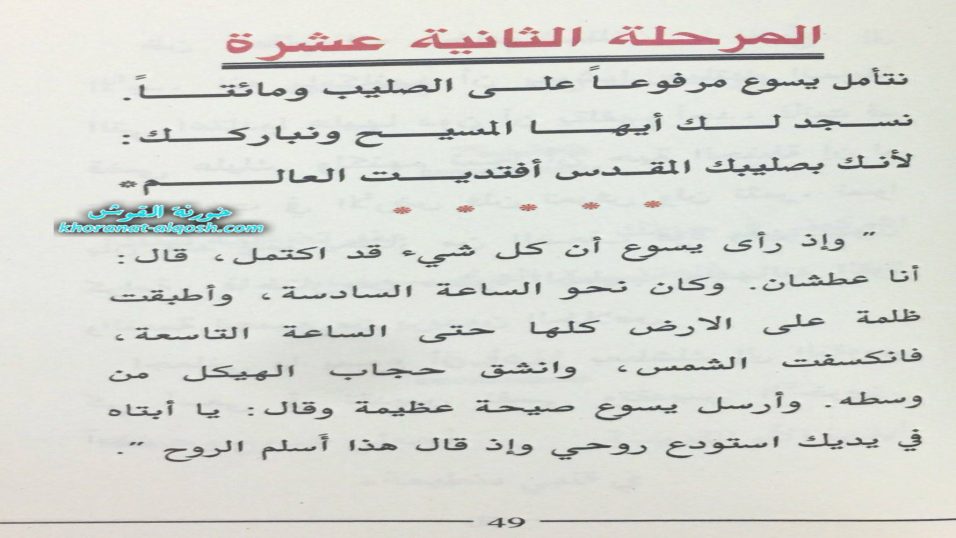 المرحلة الثانية عشرة
نتأمل يسوع مرفوعاً على الصليب ومائتاً.
نسجد لك أيها المسيح ونباركك:
لأنك بصليبك المقدس أفتديت العالم*
* * * * *
خورنة القوش
khoranat-alqosh.com
" وإذ رأى يسوع أن كل شيء قد اكتمل، قال:
أنا عطشان. وكان نحو الساعة السادسة، وأطبقت
ظلمة على الارض كلها حتى الساعة التاسعة،
فانكسفت الشمس، وانشق حجاب الهيكل من
وسطه. وأرسل يسوع صيحة عظيمة وقال: يا أبتاه
في يديك استودع روحي وإذ قال هذا أسلم الروح ".
49